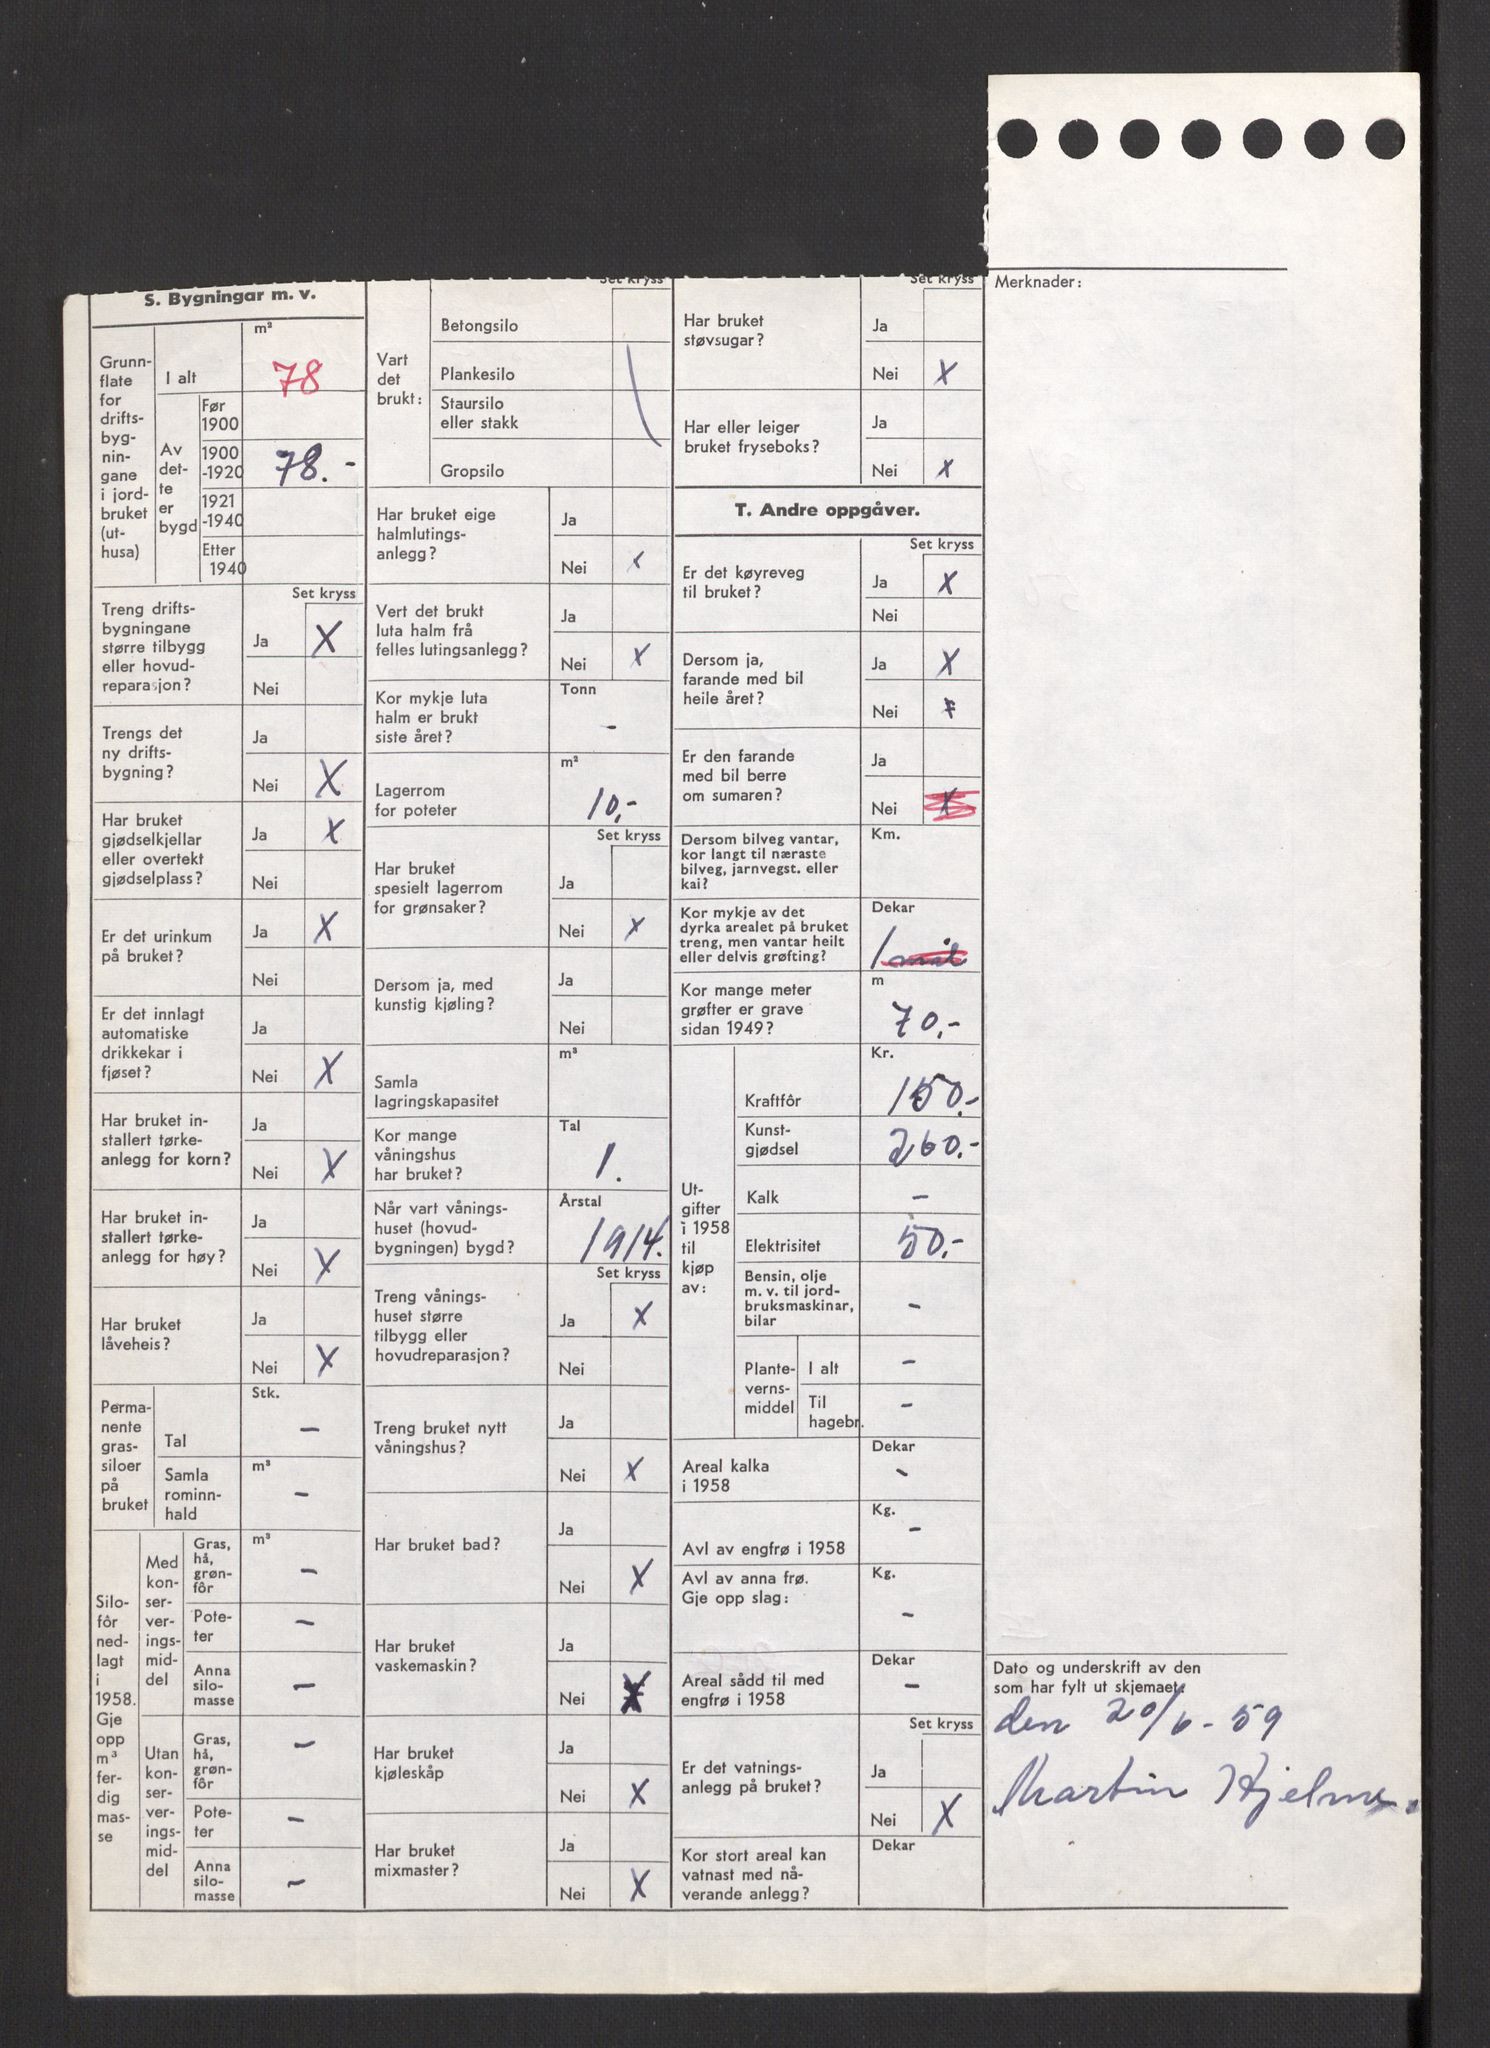 S. Bygningar m. v.
m²
Grunn-
flate
for
drifts-
byg-
nin-
gane
i jord-
bruket
(ut-
husa)
I alt
78
Av
det-
te
er
bygd
Før
1900
1900
-1920
78.-
1921
-1940
Etter
1940
Set kryss
Treng drifts-
bygningane
større tilbygg
eller hovud-
reparasjon?
Ja X
Nei
Trengs det
ny drifts-
bygning?
Ja
Nei X
Har bruket
gjødselkjellar
eller overtekt
gjødselplass?
Ja X
Nei
Er det urinkum
på bruket?
Ja X
Nei
Er det innlagt
automatiske
drikkekar i
fjøset?
Ja
Nei X
Har bruket in-
stallert tørke-
anlegg for korn?
Ja
Nei X
Har bruket in-
stallert tørke-
anlegg for høy?
Ja
Nei X
Har bruket
låveheis?
Ja
Nei X
Perma-
nente
gras-
siloer
på
bruket
Stk.
Tal –
m³
Samla
rominn-
hald
–
Silo-
fôr
ned-
lagt
i
1958.
Gje
opp
m³
fer-
dig
mas-
se
Med
kon-
ser-
ver-
ings-
mid-
del
m³
Gras,
hå,
grøn-
fôr
–
Pote-
ter
–
Anna
silo-
masse
–
Utan
kon-
ser-
ver-
ings-
mid-
del
Gras,
hå,
grøn-
fôr
–
Pote-
ter
–
Anna
silo-
masse
–
Set kryss
Vart
det
brukt:
Betongsilo
Plankesilo
Staursilo
eller stakk
Gropsilo
Har bruket eige
halmlutings-
anlegg?
Ja
Nei x
Vert det brukt
luta halm frå
felles lutingsanlegg?
Ja
Nei X
Kor mykje luta
halm er brukt
siste året?
Tonn
–
Lagerrom
for poteter
m²
10,-
Set kryss
Har bruket
spesielt lagerrom
for grønsaker?
Ja
Nei X
Dersom ja, med
kunstig kjøling?
Ja
Nei
Samla
lagringskapasitet
m³
Kor mange
våningshus
har bruket?
Tal
1.
Når vart vånings-
huset (hovud-
bygningen) bygd?
Årstal
1914.
Set kryss
Treng vånings-
huset større
tilbygg eller
hovudreparasjon?
Ja X
Nei
Treng bruket nytt
våningshus?
Ja
Nei X
Har bruket bad?
Ja
Nei X
Har bruket
vaskemaskin?
Ja
Nei X
Har bruket
kjøleskåp
Ja
Nei X
Har bruket
mixmaster?
Ja
Nei X
Set kryss
Har bruket
støvsugar?
Ja
Nei X
Har eller leiger
bruket fryseboks?
Ja
Nei X
T. Andre oppgåver.
Set kryss
Er det køyreveg
til bruket?
Ja X
Nei
Dersom ja,
farande med bil
heile året?
Ja X
Nei
Er den farande
med bil berre
om sumaren?
Ja
Nei X
Dersom bilveg vantar,
kor langt til næraste
bilveg, jarnvegst. eller
kai?
Km.
Kor mykje av det
dyrka arealet på bruket
treng, men vantar heilt
eller delvis grøfting?
Dekar
1 mål
Kor mange meter
grøfter er grave
sidan 1949?
m
70,-
Ut-
gifter
i 1958
til
kjøp
av:
Kr.
Kraftfôr 150.-
Kunst-
gjødsel 260.-
Kalk –
Elektrisitet 50.-
Bensin, olje
m. v. til jord-
bruksmaskinar,
bilar
–
Plante-
verns-
middel
I alt –
Til
hagebr.
–
Areal kalka
i 1958
Dekar
–
Avl av engfrø i 1958
Kg.
–
Avl av anna frø.
Gje opp slag:
Kg.
–
Areal sådd til med
engfrø i 1958
Dekar
–
Set kryss
Er det vatnings-
anlegg på bruket?
Ja
Nei X
Kor stort areal kan
vatnast med nå-
verande anlegg?
Dekar
Merknader:
Dato og underskrift av den
som har fylt ut skjemaet:
den 20/6-59
Martin Hjelme.